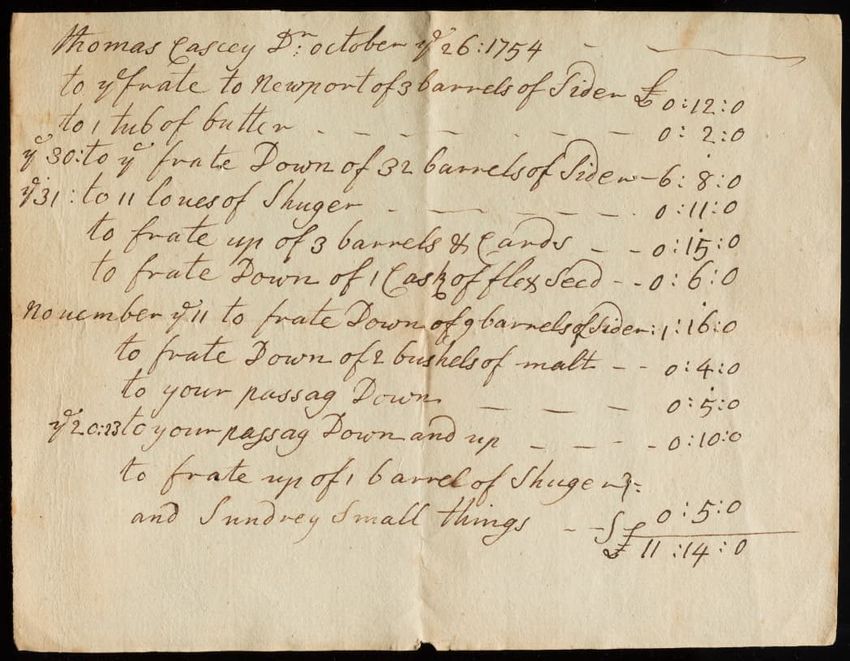 Thomas Cascey Dr: october ye 26: 1754
to ye frate to Newport of 3 barrels of Sider £ 0:12:0
to 1 tub of butter - - - - - - 0: 2:0
ye 30: to ye frate Down of 32 barrels of Sider - 6: 8:0
ye 31: to 11 loues of Shuger - - - - - 0:11:0
to frate up of 3 barrels & Cards - - 0:15:0
to frate Down of 1 Cask of flex Seed - - 0:6:0
Nouember ye 11 to frate Down of 9 barrels of Sider: 1:16:0
to frate Down of 2 bushels of malt - - 0:4:0
to your passag Down - - - 0:5:0
ye 20:23 to your passag Down and up - - - - 0:10:0
to frate up of 1 barrel of Shuger
and Sundrey Small things - - 0:5:0
£ 11:14:0